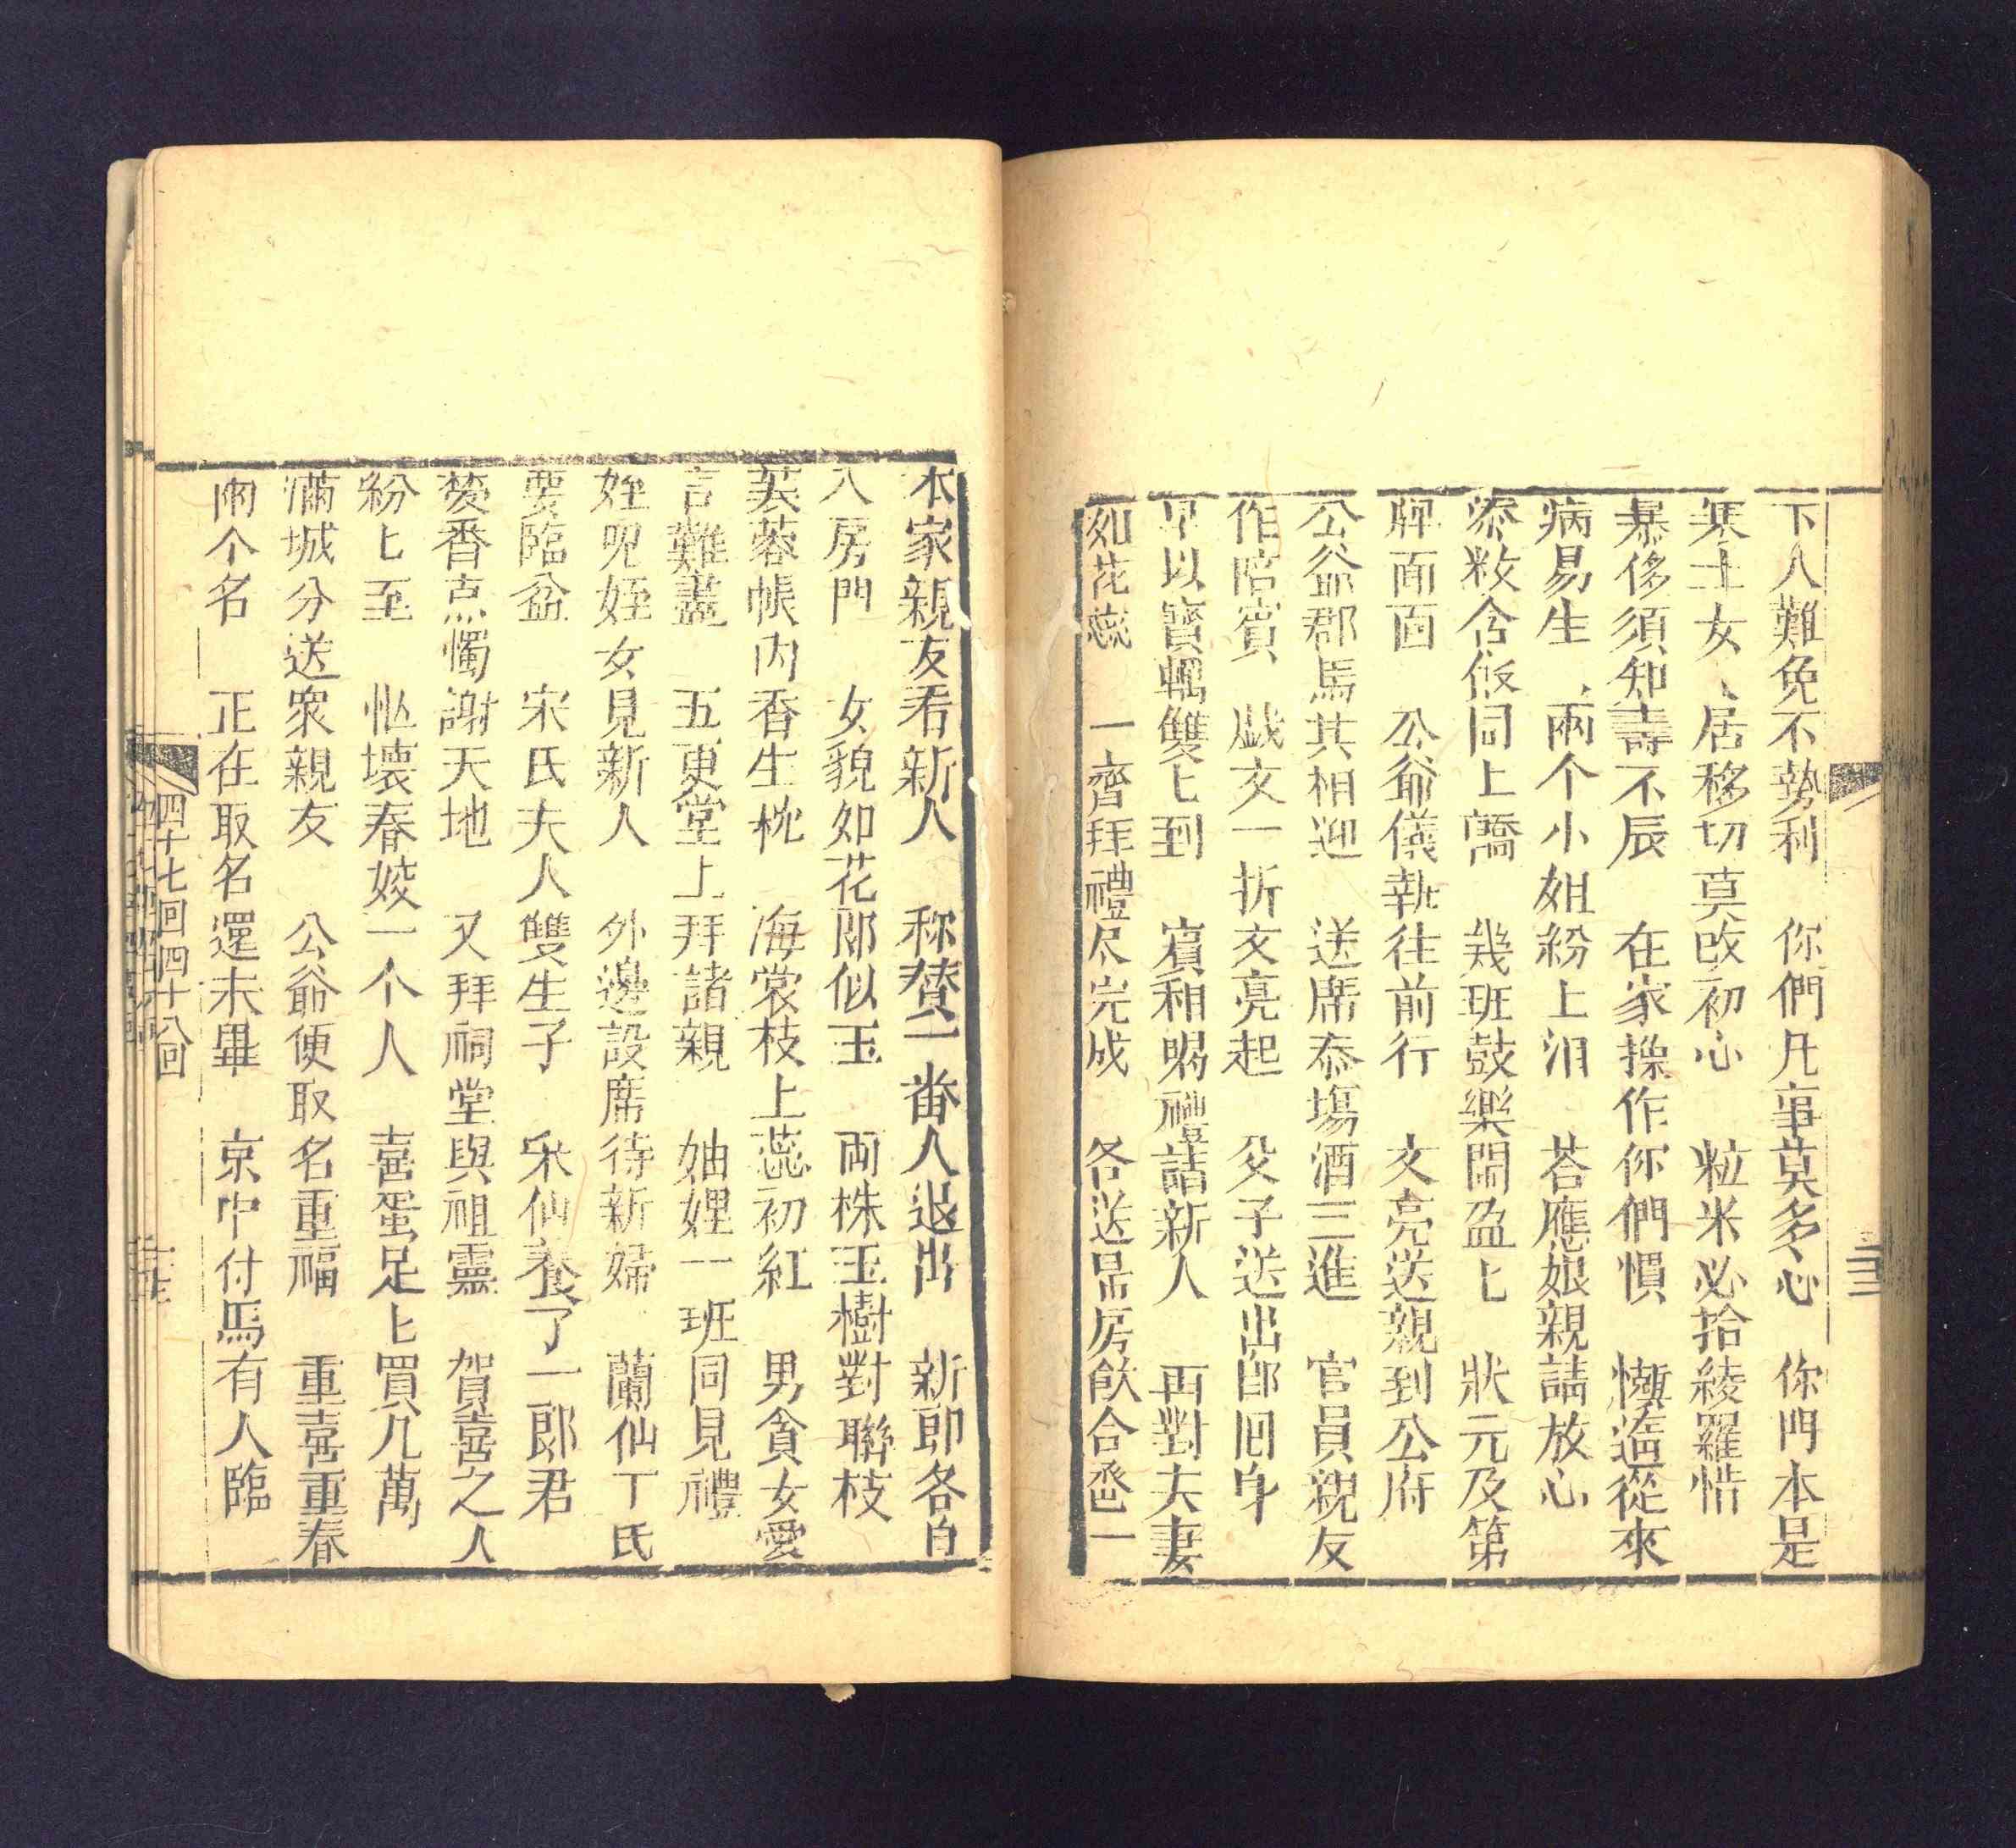 下人難免不勢利　你們凡事莫多心　你門本是
寒士女、居移切莫改初心　粒米必拾綾羅惜
暴侈須知壽不辰　在家操作你們慣　懶惰從來
病易生、兩个小姐紛上泪　荅應娘親請放心
添敉含伮同上轎　幾班鼓樂鬧盈匕　狀元及第
牌面面　公爺儀執往前行　文亮送親到公府
公爺郡馬共相迎　送席泰塲酒三進　官員親友
作陪賓　戯文一折文亮起　父子送出卽囬身
早以寳輌雙匕到　賓相喝禮請新人　再對夫妻
如花蕊　一齊拜禮尽完成　各送吊房飲合卺一
本家親友看新人　称賛一番人退出　新郎各自
入房門　女貌如花郎似玉　両株玉樹對聯枝
芙蓉帳内香生枕　海棠枝上蕊初紅　男貪女愛
言難盡　五更堂上拜諸親　妯娌一班同見禮
姪兒姪女見新人　外邊設席待新婦　蘭仙丁氏
要臨盆　宋氏夫人雙生子　釆仙養了一郎君
𤎉香点燭謝天地　又拜祠堂與祖靈　賀喜之人
紛匕至　忙壞春姣一个人　喜蛋足匕買几萬
滿城分送衆親友　公爺便取名重福　重喜重春
兩个名　正在取名還未畢　京中付馬有人臨
四十七回四十八回